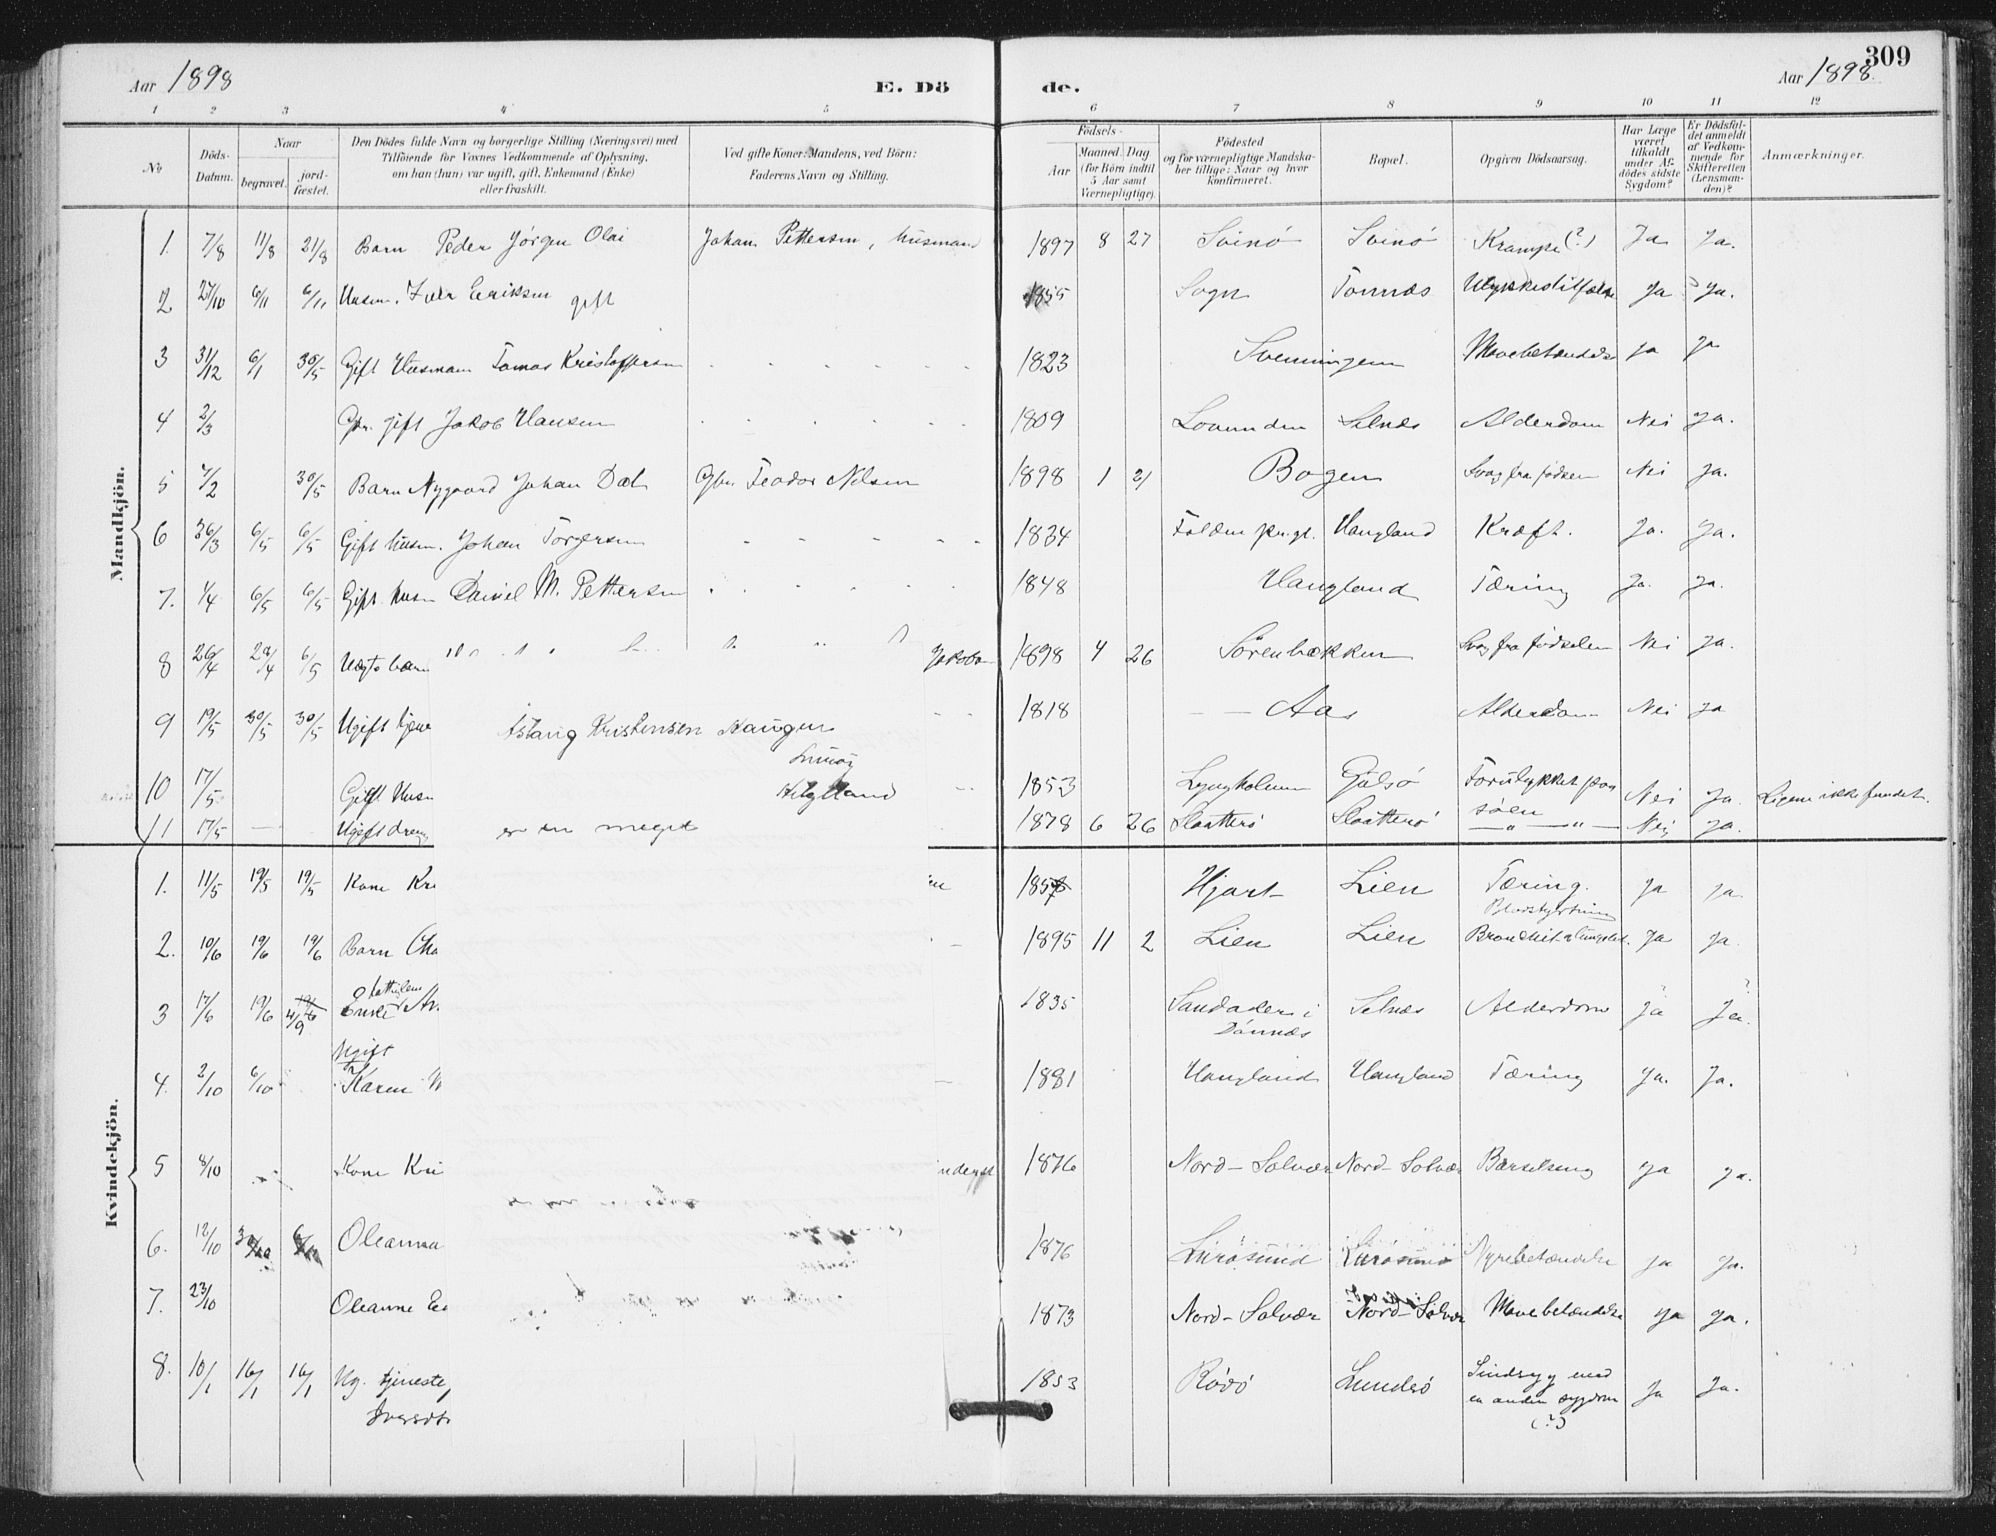 309
Aar 1898 E. Döde. Aar 1898
1 2 3 4 5 6 7 8 9 10 11 12
No
Döds-Datum.
Naar begravet. jordfæstet.
Den Dödes fulde Navn og borgerlige Stilling (Næringsvei) med
Tilföiende for Voxnes Vedkommende af Oplysning,
om han (hun) var ugift, gift, Enkemand (Enke)
eller fraskilt.
Ved gifte Koner: Mandens, ved Börn:
Faderens Navn og Stilling.
Födsels-
Aar
Maaned. Dag
(for Börn indtil
5 Aar samt
Værnepligtige).
Födested
og for værnepligtige Mandska-
ber tillige: Naar og hvor
konfirmeret.
Bopæl.
Opgiven Dödsaarsag.
Har Læge
været
tilkaldt
under Af-
dödes sidste
Sygdom?
Er Dödsfal-
det anmeldt
af Vedkom-
mende for
Skifteretten
(Lensman-
den)?
Anmærkninger.
Mandkjön.
1. 7/8 11/8 21/8 Barn Peder Jörgen Olai Johan Pettersen, husmand 1897 8 27 Svinö Svinö Krampe (?) Ja Ja.
2 27/10 6/11 6/11 Husm. Eriksen gift 1855 Sogn Tonnes Ulykkestilfælde Ja Ja.
3 31/12 6/1 30/5 Gift Husmann Tomas Kristoffersen 1823 Svenningen Mavebetændelse Ja Ja
4 2/3 Gbr. gift Jakob Hansen 1809 Lovunden Selnæs Alderdom Nei Ja.
5 7/2 30/5 Barn Nygaard Johan Dal Gbr. Teodor Nilsen 1898 1 21 Bogen Svag fra födsen Nei Ja.
6 26/3 6/5 6/5 Gift husm. Johan Torgersen 1834 Folden pr.gl. Haugland Kræft. Ja. Ja.
7. 1/4 6/5 6/5 Gift husm Daniel M. Pettersen 1848 Haugland Tæring Ja. Ja.
8 26/4 29/4 6/5 Uægte barn Jakobsen 1898 4 26 Sörenbækken Svag fra födselen Nei Ja.
9 19/5 30/5 30/5 Ugift tjene Aslaug Kristensen Haugen 1818 Aas Alderdom Nei Ja
Lurøy
10 17/5 Gift Husm Helgeland 1853 Lyngholmen Gulsö Forulykket paa söen Nei Ja. Ligene ikke fundet.
11 17/5 Ugift dreng er en meget 1878 6 26 Slaatterö Slaatterö — " — " — Nei Ja.
Kvindekjön.
1. 11/5 19/5 19/5 Kone Kri en 1857 Hjart Lien Tæring. Ja Ja.
Blodstyrtning
2. 10/6 19/6 19/6 Barn Cha 1895 11 2 Lien Lien Bronchit Ja Ja.
3 17/6 19/6 19/6 4/9 Enke 1835 Sandaker i Dönnæs Selnæs Alderdom Ja Ja.
Ugift
4. 2/10 6/10 Karen M 1881 Haugland Haugland Tæring Ja. Ja.
5 8/10 Kone Kri 1876 Nord-Solvær Nord-Solvær Barselseng Ja Ja.
6. 12/10 Oleanna 1876 Lurösund Lurösund Nyrebetændelse Ja Ja.
7. 23/10 Oleanne 1873 Nord-Solvær Nord-Solvær Mavebetændelse Ja Ja.
8. 10/1 16/1 16/1 Ug. tjeneste 1853 Rödö Lundö Sindssyg med en anden sygdom (?) Ja Ja.